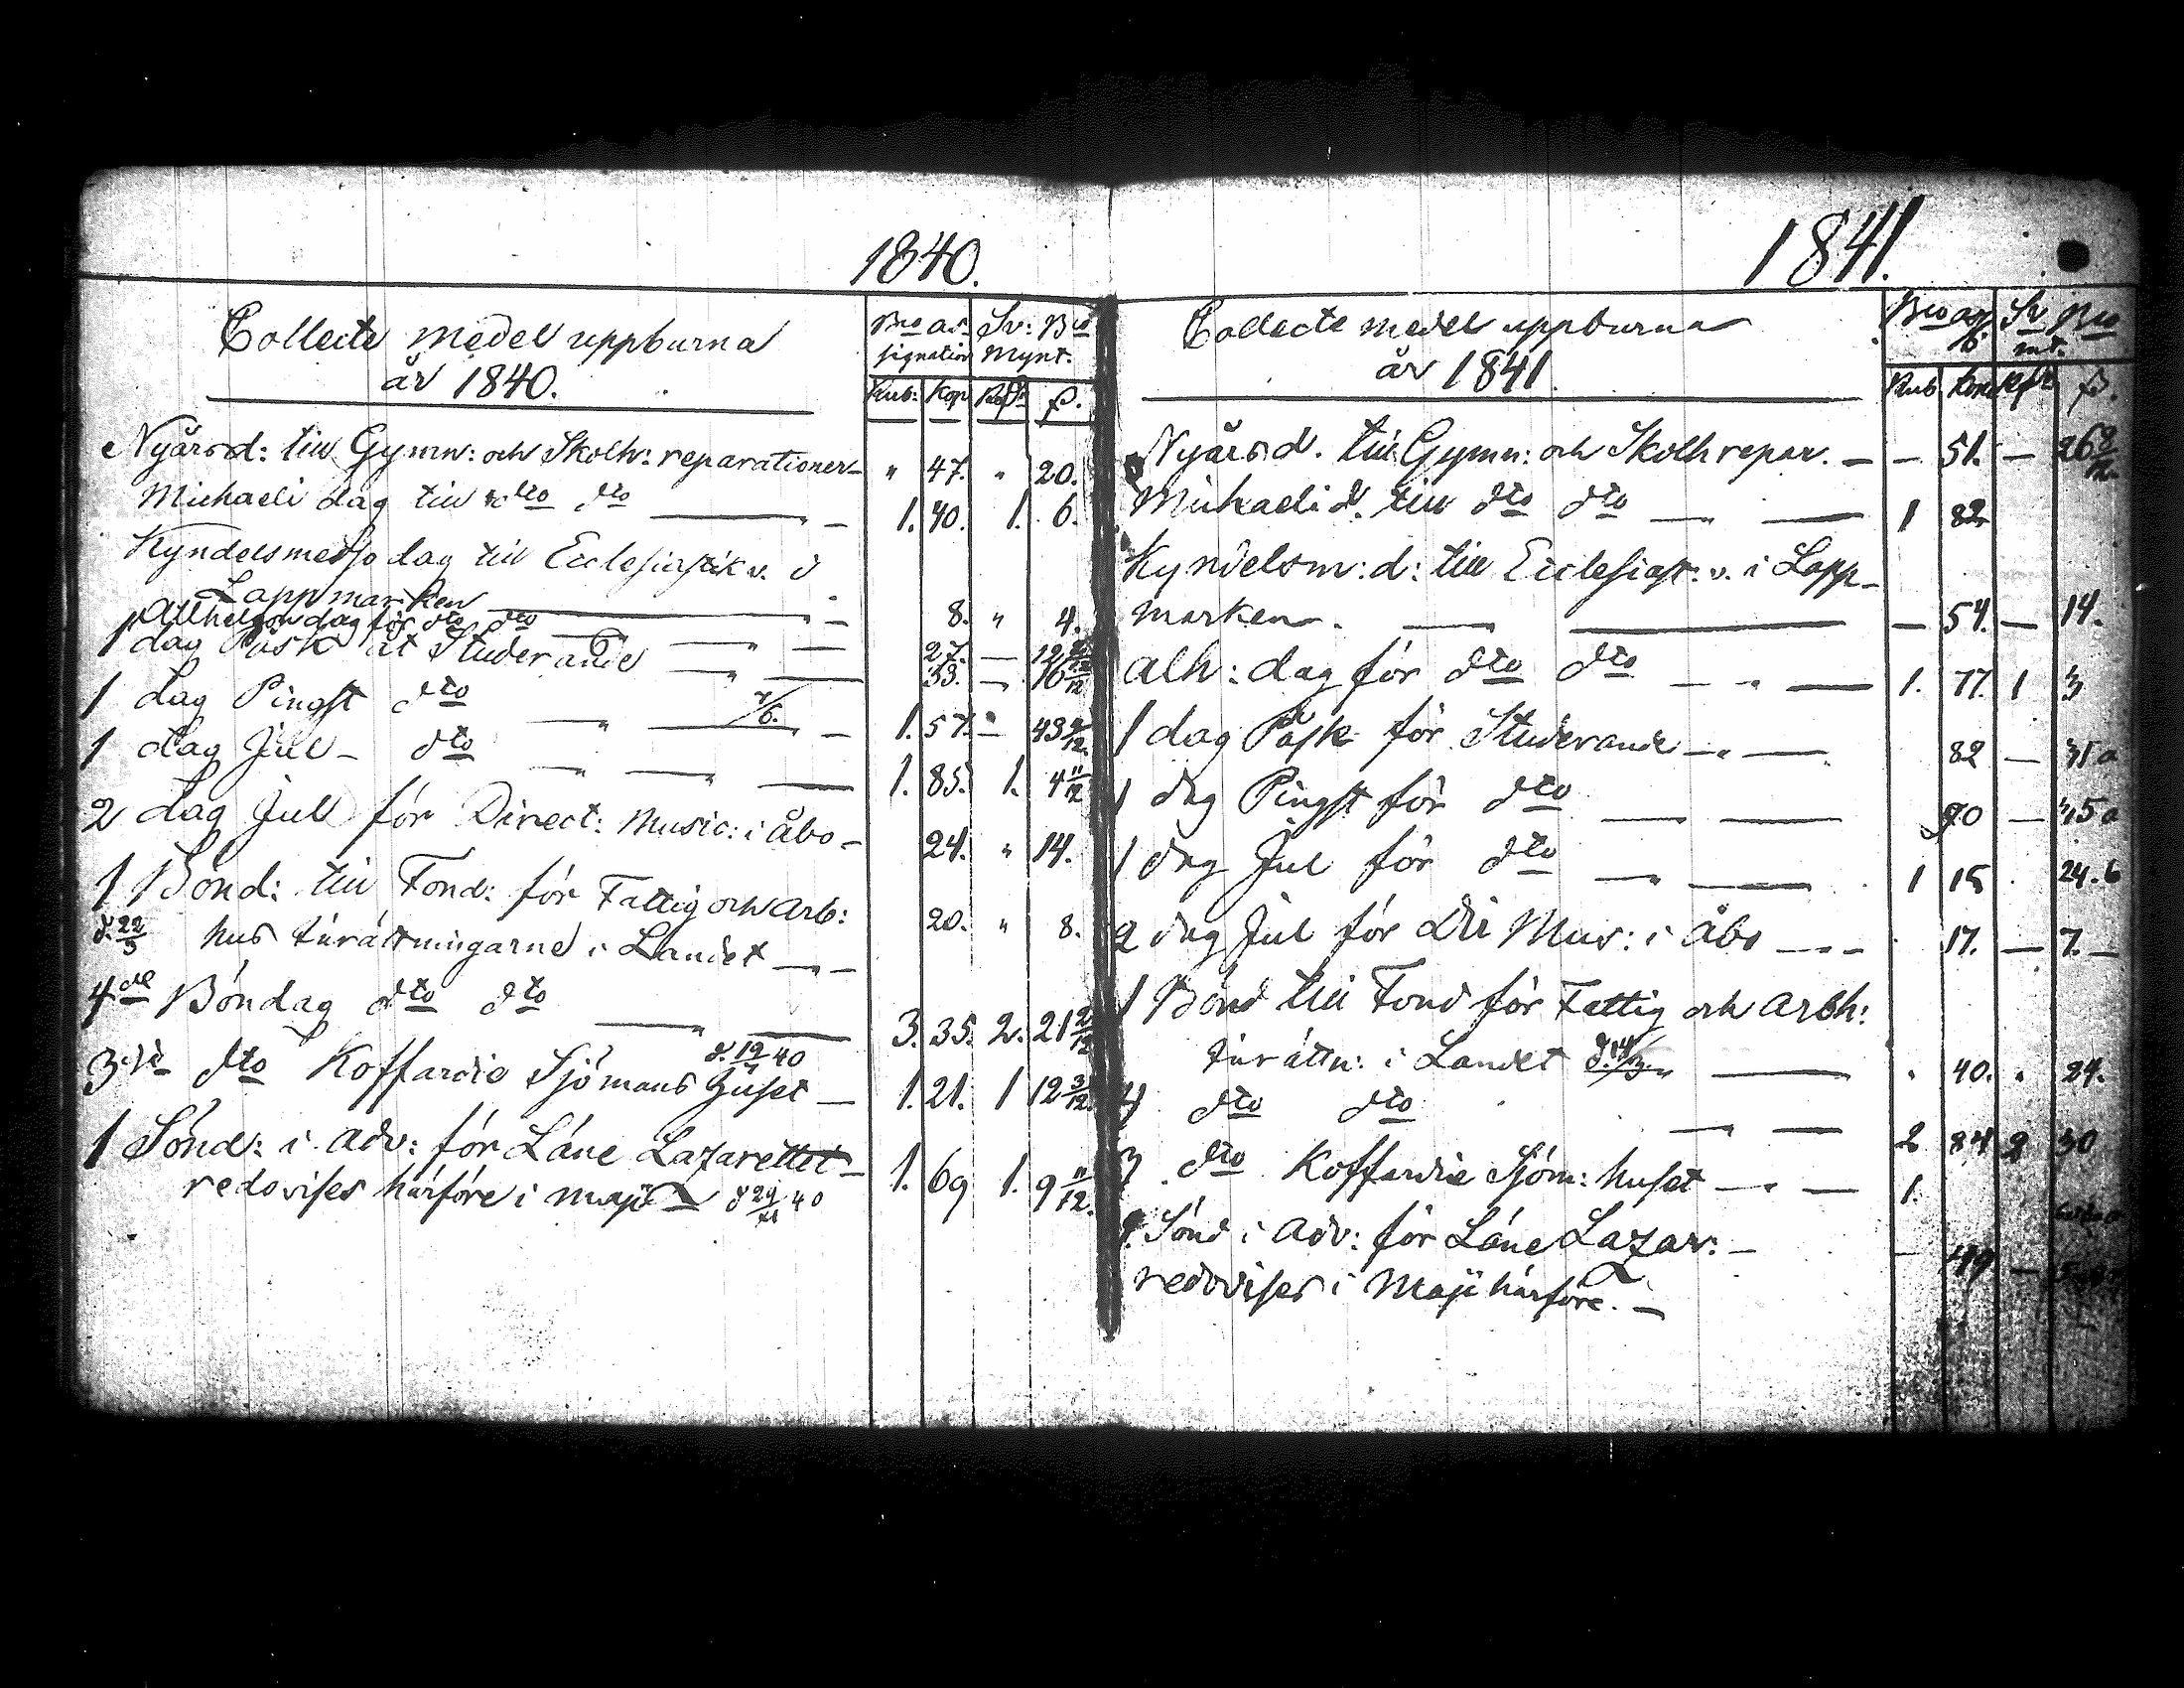 1840.
Collecte medel uppburna
år 1840.
Bco as- Sv: Bco
signation Mynt.
Rub: Kop Rdr ß.
Nyårsd: till Gymn: och Skolh: reparationer - " 47. " 20.
Michaeli dag till dto dto — " — 1. 40. 1. 6.
Kyndelsmesso dag till Ecclesiastik v. i
Lappmarken — " — 8. " 4.
Allhelgon dag för dto dto — " — 27. — 12
1 dag Påsk åt Studerande — " — 33. —
1 dag Pingst dto — " — 1. 57. " 43 9/12.
1 dag Jul - dto — " — " — 1. 85. 1. 4 11/12
2 dag Jul för Direct: Music: i Åbo - 24. " 14.
1 Bönd: till Fond: för Fattig och Arb:
d. 22/3 hus inrättningarne i Landet — " — 20. " 8.
4de Böndag dto dto — " — 3. 35. 2. 21 2/12
3die dto Koffardie Sjömans Huset — 1. 21. 1 12 3/12.
1 Sönd: i Adv: för Läne Lazarettet - 1. 69 1. 9 11/12.
redovises härföre i Maji
1841.
Collecte medel uppburna
år 1841.
Bco as Sv Bco
mt.
Rub ß.
Nyårsd. till Gymn: och Skolh repar. — — 51. — 26
Michaeli d. till dto dto — " — 1 82
Kyndelsm: d: till Ecclesiast: v. i Lapp-
marken. — " — — 54. — 14.
Alh: dag för dto dto — " — 1. 77. 1 3
1 dag Påsk för Studerande — " — 82 —
1 dag Pingst för dto — " — 90 —
1 dag Jul för dto — " — 1 15 . 24. 6
2 dag Jul för Dir Mus: i Åbo — " — 17. — 7. —
1 Bönd till Fond för Fattig och Arbh:
inrättn: i Landet — " 40. " 24.
4 dto dto — " — 2 84 2 30
3 dto Koffardie Sjöm: huset — " — 1.
1. Sönd i Adv: för Läne Lazar: — — 49 —
redovises i Maji härföre. —